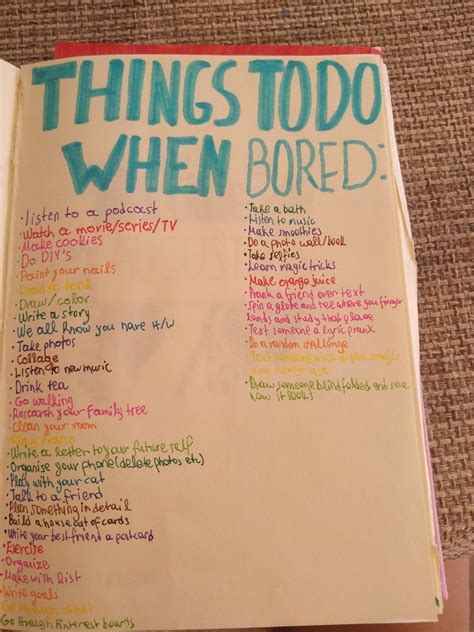 THINGS TO DO
WHEN BORED:
· listen to a podcast
· Watch a movie/series/TV
· Make cookies
· Do DIY's
· Paint your nails
· Read a book
· Draw/color
· Write a story
· We all know you have H/W
· Take photos
· Collage
· Listen to new music
· Drink tea
· Go walking
· Research your family tree
· Clean your room
· Play piano
· Write a letter to your future self
· Organise your phone (delete photos etc)
· Play with your cat
· Talk to a friend
· Plan something in detail
· Build a house out of cards
· Write your best friend a postcard
· Exercise
· Organize
· Make wish list
· Write goals
· Go through closet
· Go through Pinterest boards
· Take a bath
· Listen to music
· Make smoothies
· Do a photo wall/book
· Take selfies
· Learn magic tricks
· Make orange juice
· Prank a friend over text
· Spin a globe and see where you finger
lands and study that place
· Text someone a lyric prank
· Do a random challenge
· Text someone most of the emojis
You never use
· Draw someone blindfolded and see
how it looks